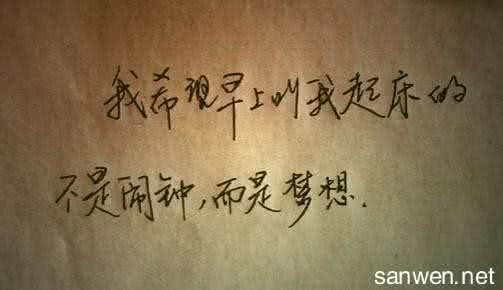 我希望早上叫我起床的
不是闹钟，而是梦想.
sanwen.net